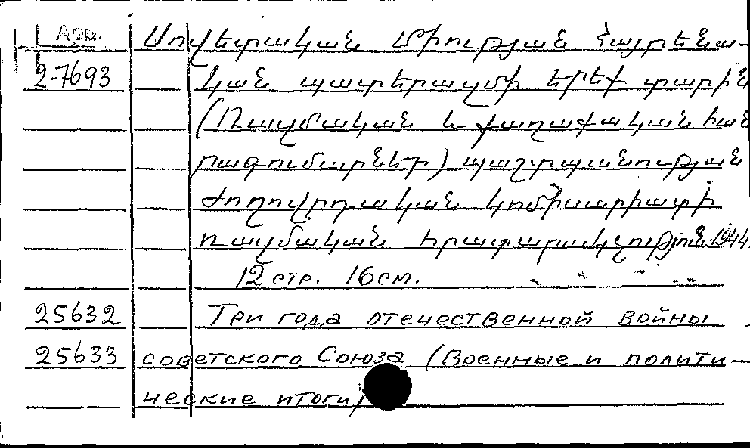 Арм. Սովետական Միության Հայրենա-
2-7693 կան պատերազմի երեք տարին
(Ռազմական և քաղաքական հան
րագումարներ) պաշտպանության
ժողովրդական կոմիսարիատի
ռազմական հրատարակչություն, 1944.
12 стр. 16 см.
25632 Три года отечественной войны
25633 советского Союза (Военные и полити-
ческие итоги)